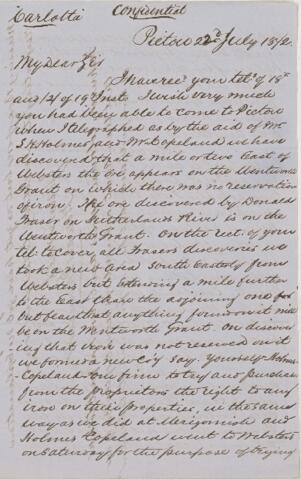 Carlotta
Confidential
Pictou 22nd July 1872
My Dear Sir
I have recd your letr of 18th
and 2 of 19th Inst. I wish very much
you had been able to come to Pictou
when I telegraphed as by the aid of Mr
S. H. Holmes and Mr Copeland we have
discovered that a mile or two East of
Websters the ore appears on the Wentworth
Grant on which there was no reservation
of iron. The ore discovered by Donald
Fraser on Sutherlands River is on the
Wentworth Grant. On the rect. of your
tel to cover all Frasers discoveries we
took a new area South Easterly from
Websters but extending a mile further
to the East than the adjoining one
but beyond that anything found on it must
be on the Wentworth Grant. On discover
ing that iron was not reserved on it
we formed a new Co'y say. Yourself Holmes
Copeland Our firm to try and purchase
from the Proprietors the right to any
iron on their properties, in the same
way as we did at Merigomish and
Holmes Copeland went to Websters
on Saturday for the purpose of trying